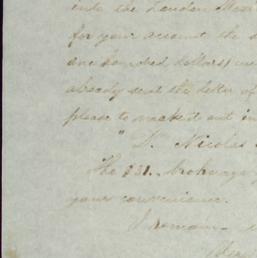 into the London
for your account the
one hundred dollars,
already sent the letter of
please to make it out in
"Dr. Nicolas
The $31. brokerage
your convenience.
I remain